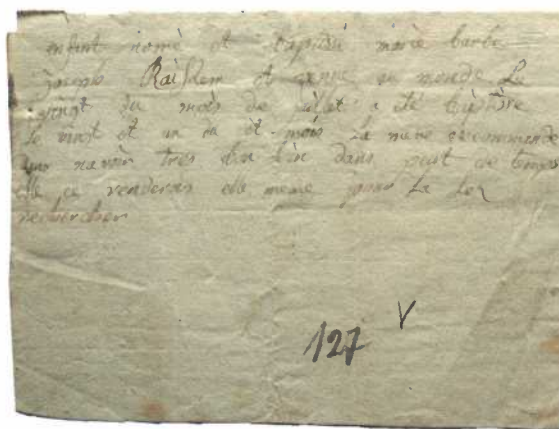 enfant nomé et baptisé marie barbe
joseph Raiskem et venue au monde Le
vingt du mois de juillet a été baptisée
le vingt et un du dit mois la mere recommande
den navoir tres bien soin dans peut de temps
elle ce renderas elle meme pour La Les
rechercher
127 V